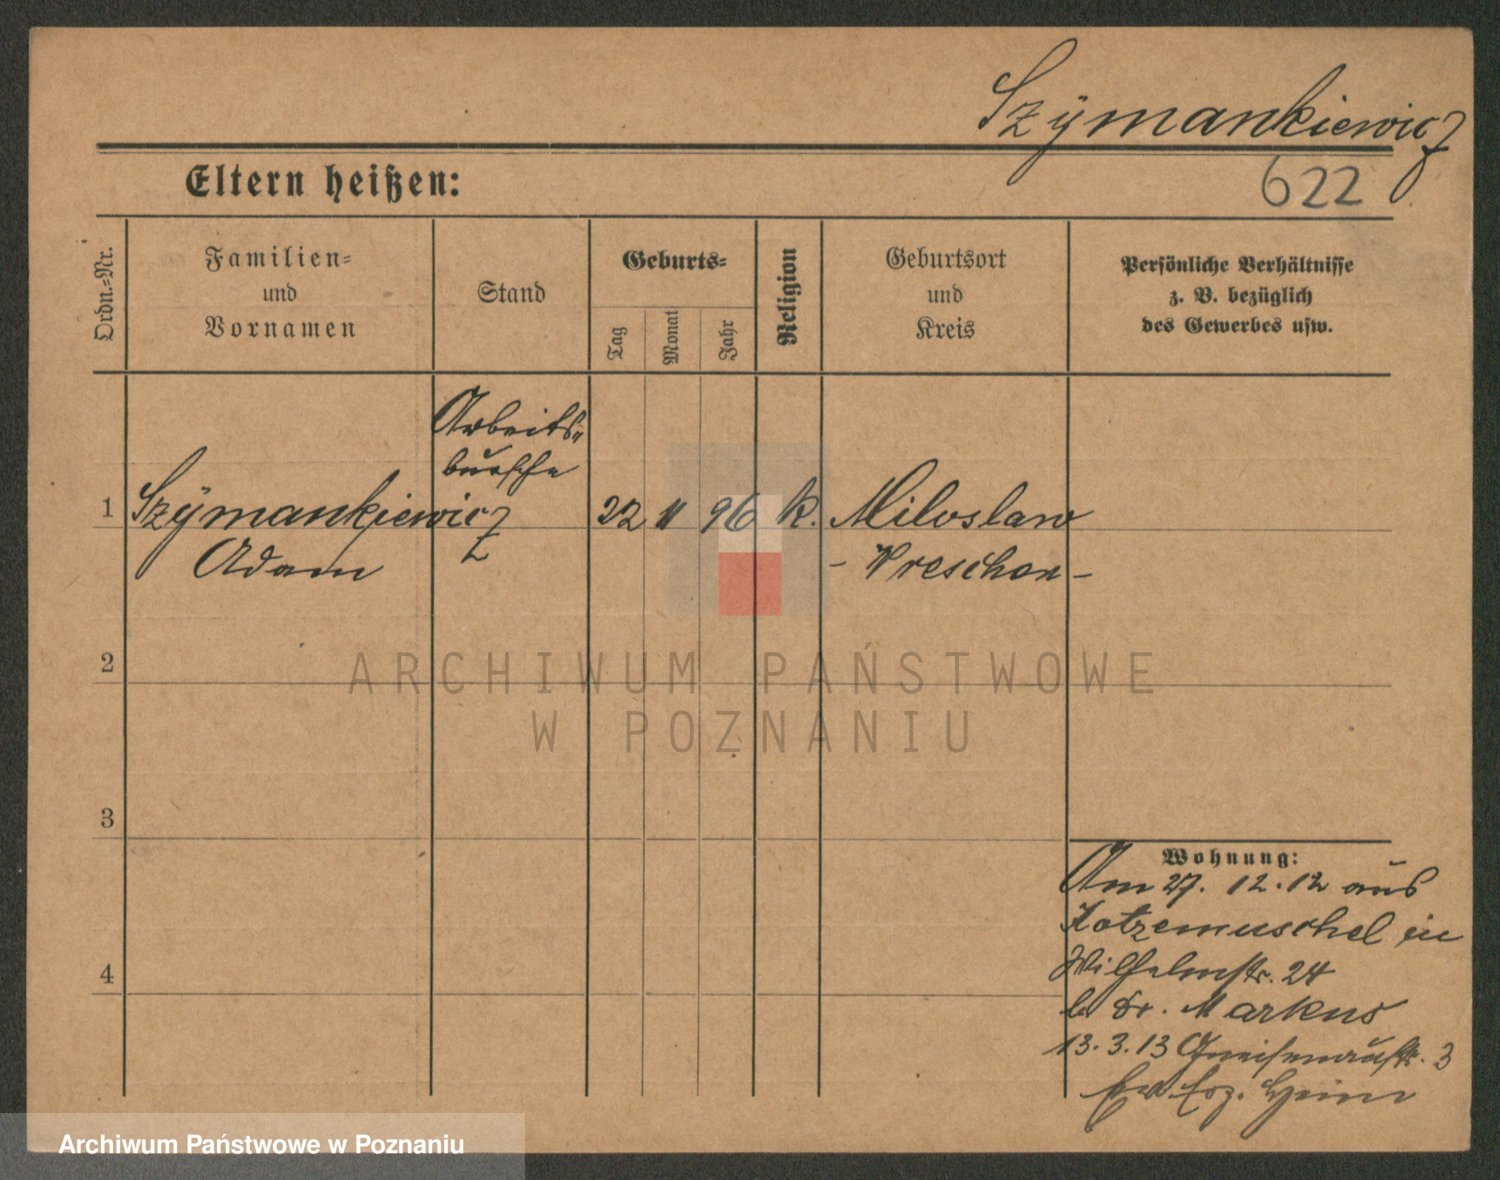 Szymankiewicz
622
Eltern heißen:
Ordn.-Nr.
Familien-
und
Vornamen
Stand
Geburts-
Tag
Monat
Jahr
Religion
Geburtsort
und
Kreis
Persönliche Verhältnisse
z. B. bezüglich
des Gewerbes usw.
Arbeits-
bursche
1 Szymankiewicz 22 11 96 k. Miloslaw
Adam - Wreschen -
2
ARCHIWUM PAŃSTWOWE
W POZNANIU
3
Wohnung:
Am 27. 12. 12 aus
Kotzemuschel in
Wilhelmstr. 24
b Dr. Markus
4
13. 3. 13 Gneisenaustr. 3
Erz. Heim
Archiwum Państwowe w Poznaniu